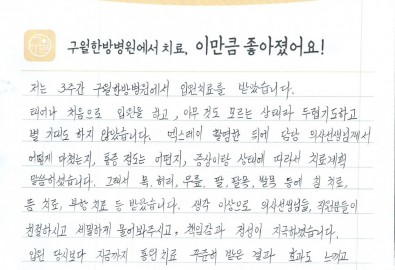 구월한방병원에서 치료, 이만큼 좋아졌어요!
저는 3주간 구월한방병원에서 입원치료를 받았습니다.
태어나 처음으로 입원을 하고, 아무 것도 모르는 상태라 두렵기도하고
별 기대도 하지 않았습니다. 엑스레이 촬영한 뒤에 담당 의사선생님께서
어떻게 다쳤는지, 통증 정도는 어떤지, 증상이랑 상태에 따라서 치료계획
말씀하셨습니다. 그래서 목, 허리, 무릎, 팔, 팔목, 발목 등에 침 치료,
등 치료, 부항 치료 등 받았습니다. 생각 이상으로 의사선생님들, 직원분들이
친절하시고 세밀하게 물어봐주시고. 책임감과 정성이 지극하셨습니다.
입원 당시보다 지금까지 통원치료 꾸준히 받은 결과 효과도 느끼고